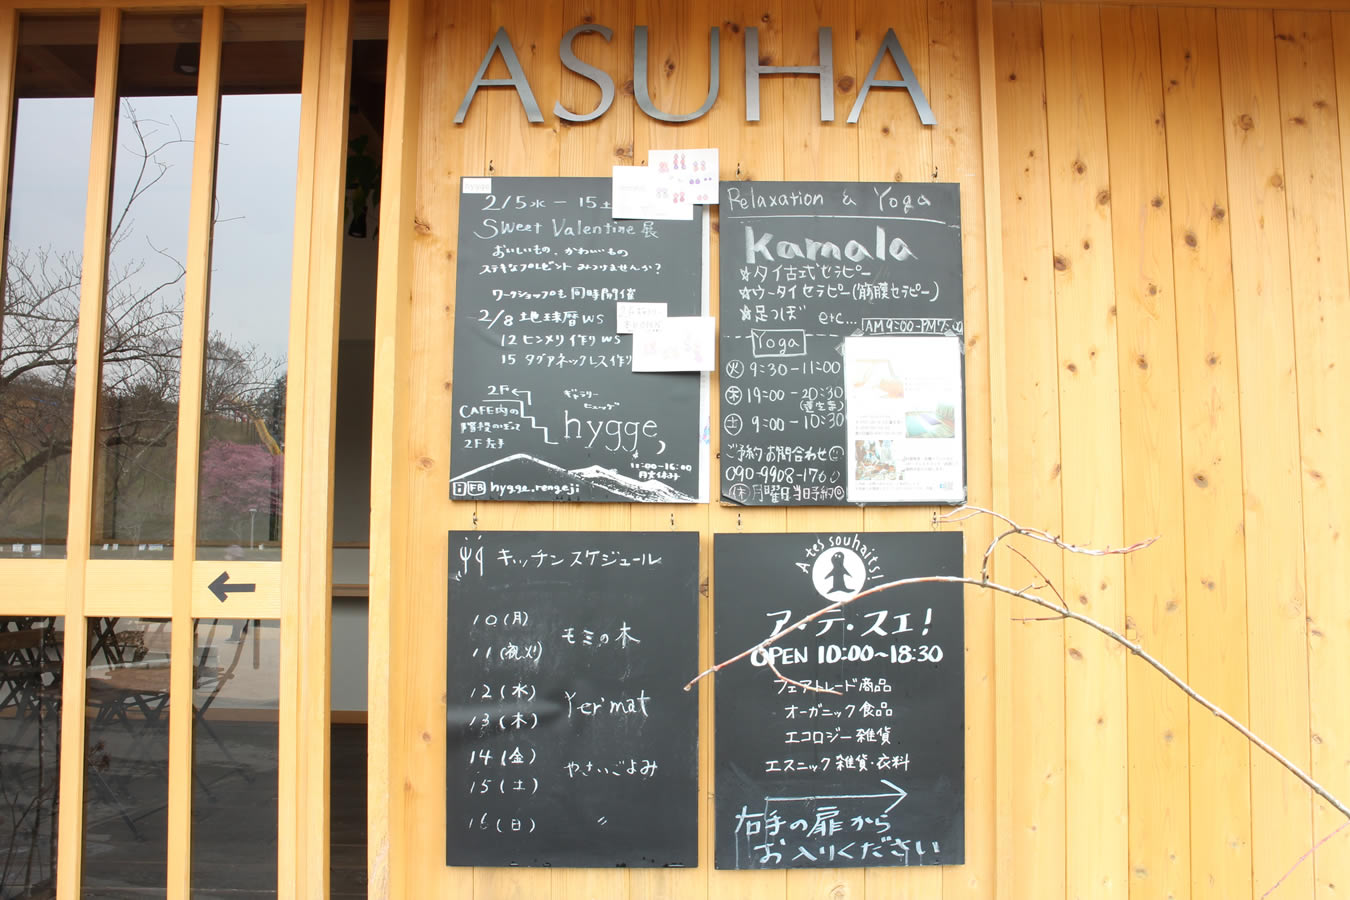 ASUHA
hygge
2/5水 - 15土
Sweet Valentine 展
おいしいもの、かわいいもの
ステキなプレゼント みつけませんか?
ワークショップも同時開催
2/8 地球暦WS
12 ヒンメリ作りWS
15 タグアネックレス作り
2F
CAFE内の
階段のぼって
2F左手
ギャラリー
ヒュッゲ
hygge,
11:00-16:00
hygge_rengeji
Relaxation & Yoga
Kamala
☆タイ古式セラピー
☆ウータイセラピー(筋膜セラピー)
☆足つぼ etc...
AM9:00-PM7:00
Yoga
火 9:30-11:00
木 19:00-20:30
土 9:00-10:30
ご予約お問合わせ
090-9908-1760
休 月曜日 当日予約
キッチンスケジュール
10(月)
モミの木
11(祝火)
12(水)
Yer'mat
13(木)
14(金)
やさいごよみ
15(土)
16(日) 〃
A tes souhaits!
ア・テ・スエ!
OPEN 10:00~18:30
フェアトレード商品
オーガニック食品
エコロジー雑貨
エスニック雑貨・衣料
右手の扉から
お入りください